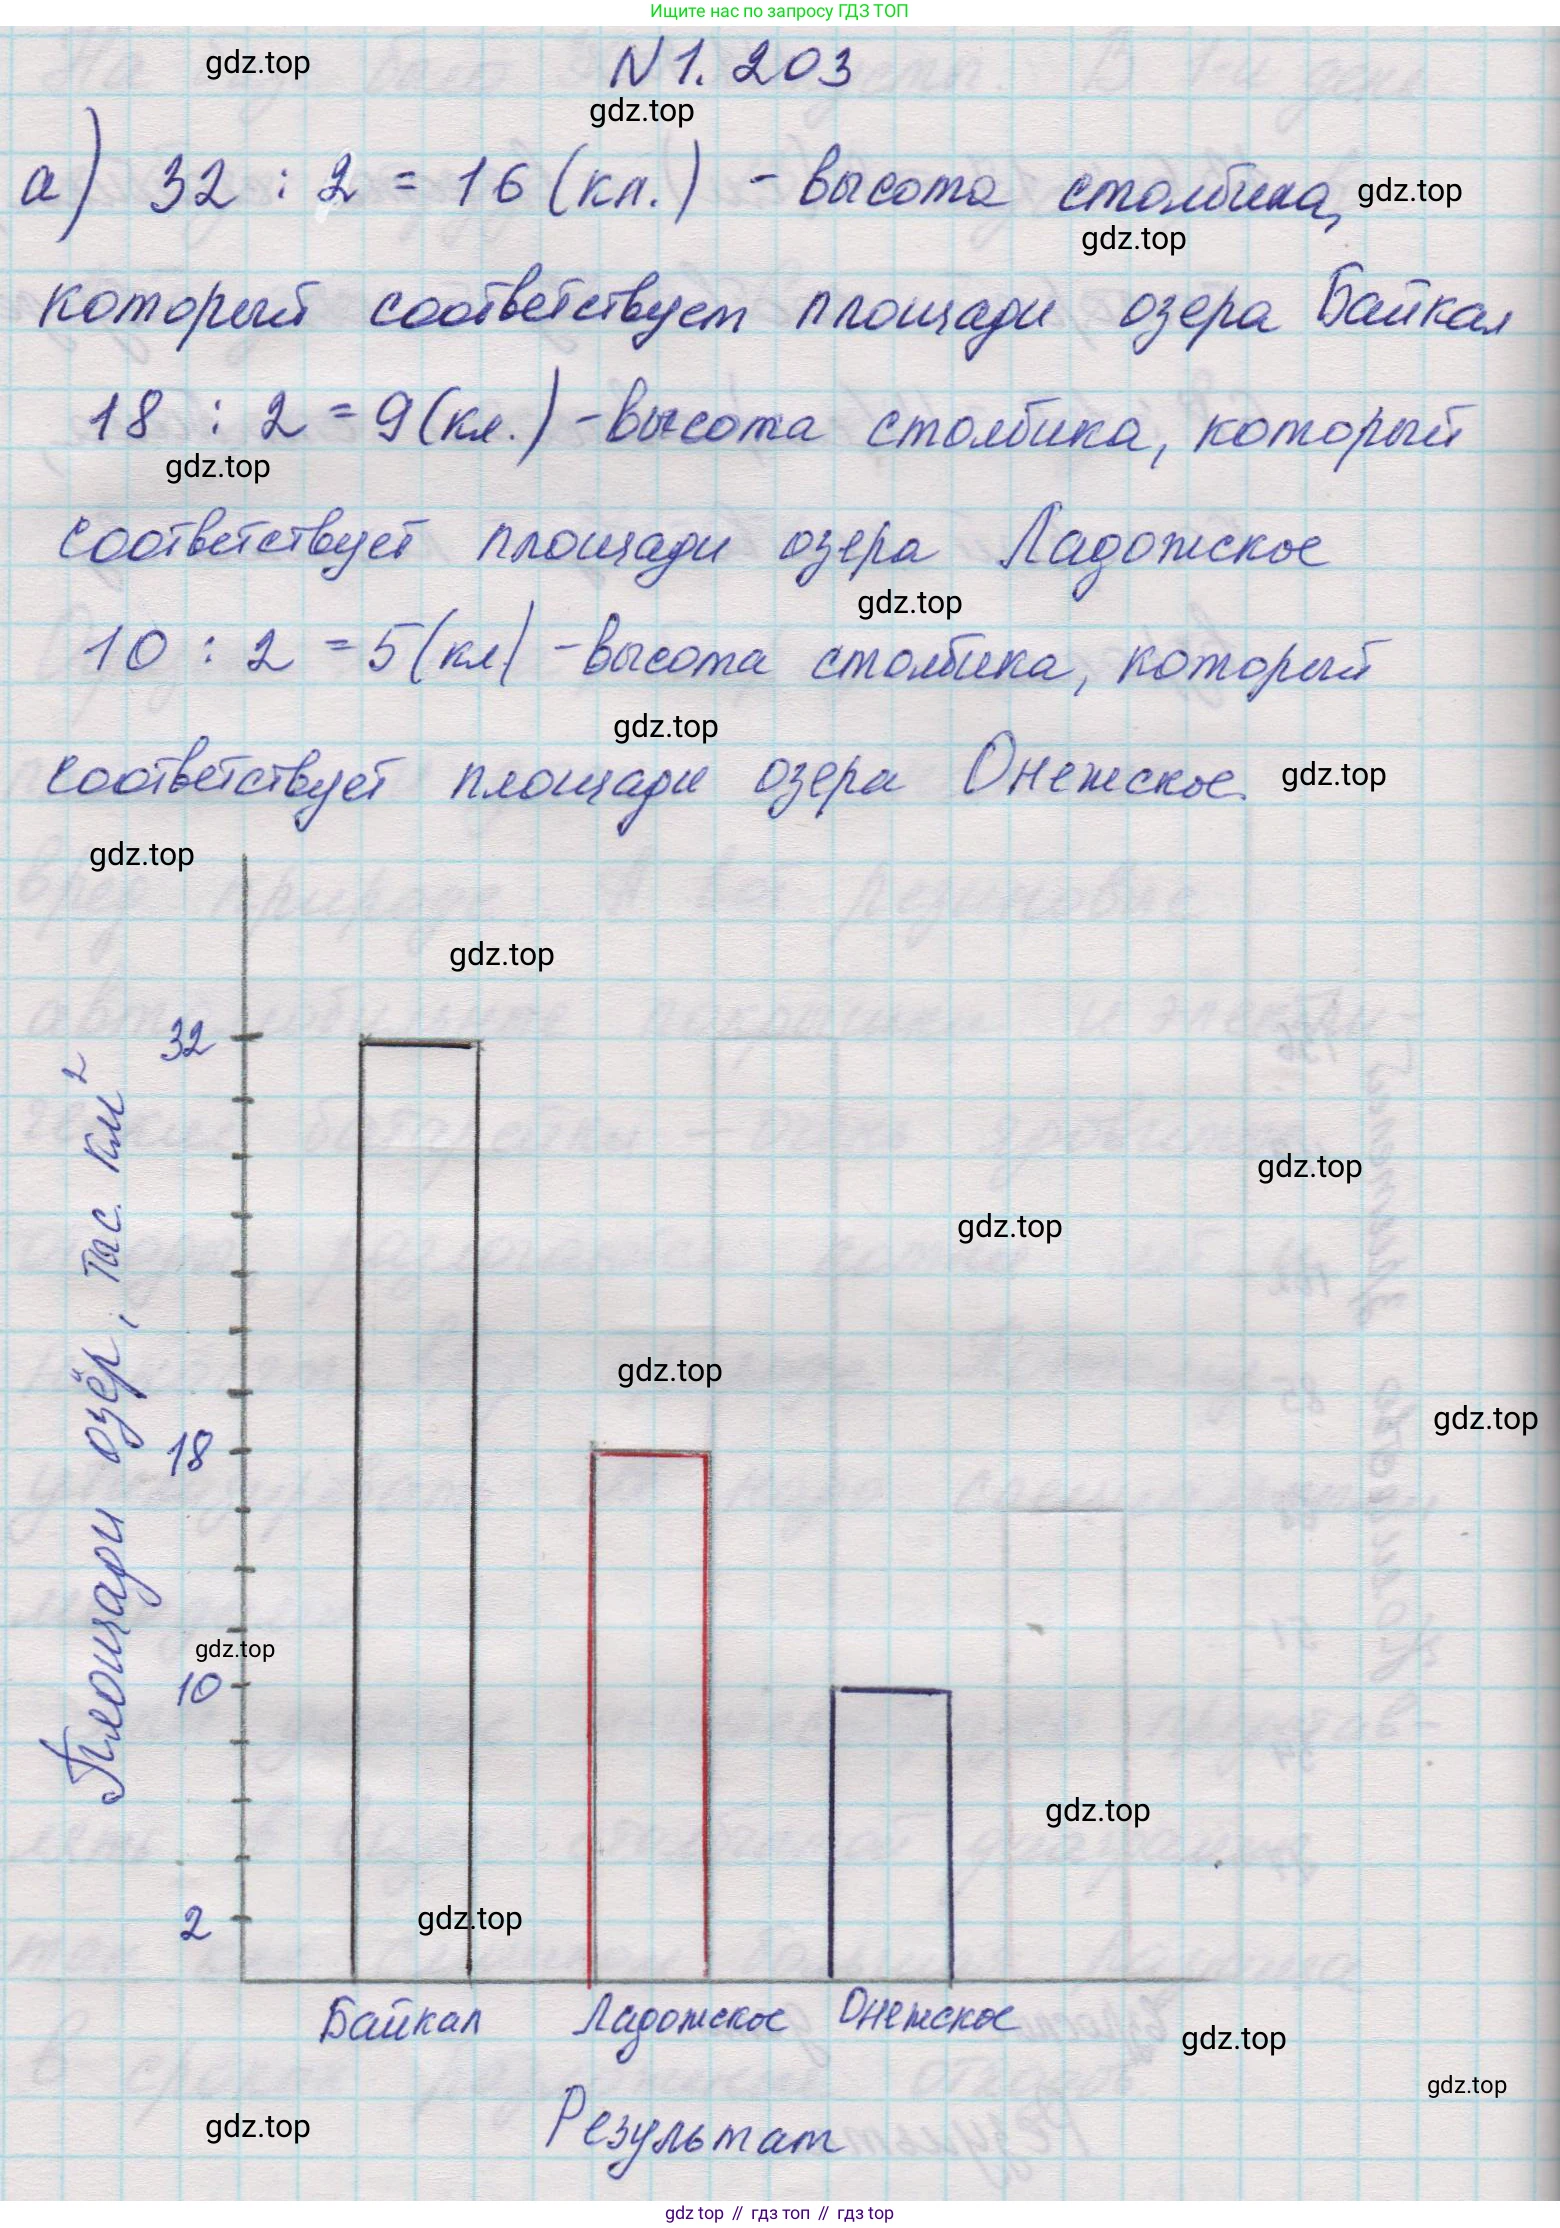 Ищите нас по запросу ГДЗ ТОП
N 1. 203
gdz.top
gdz.top
а) 32 : 2 = 16 (кл.) - высота столбика,
gdz.top
gdz.top
который соответствует площади озера Байкал
18 : 2 = 9 (кл.) - высота столбика, который
gdz.top
соответствует площади озера Ладожское
gdz.top
10 : 2 = 5 (кл) - высота столбика, который
gdz.top
соответствует площади озера Онежское.
gdz.top
gdz.top
gdz.top
Площади озёр, тыс. км²
32
gdz.top
gdz.top
gdz.top
gdz.top
18
gdz.top
10
gdz.top
gdz.top
2
Байкал Ладожское Онежское
gdz.top
gdz.top
gdz.top
Результат
gdz top // гдз топ // гдз top